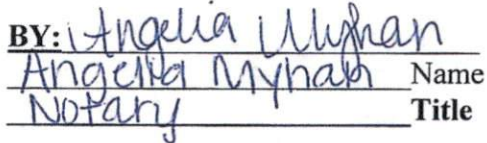 BY: Angelia Myhan
Angelia Myhan Name
Notary Title